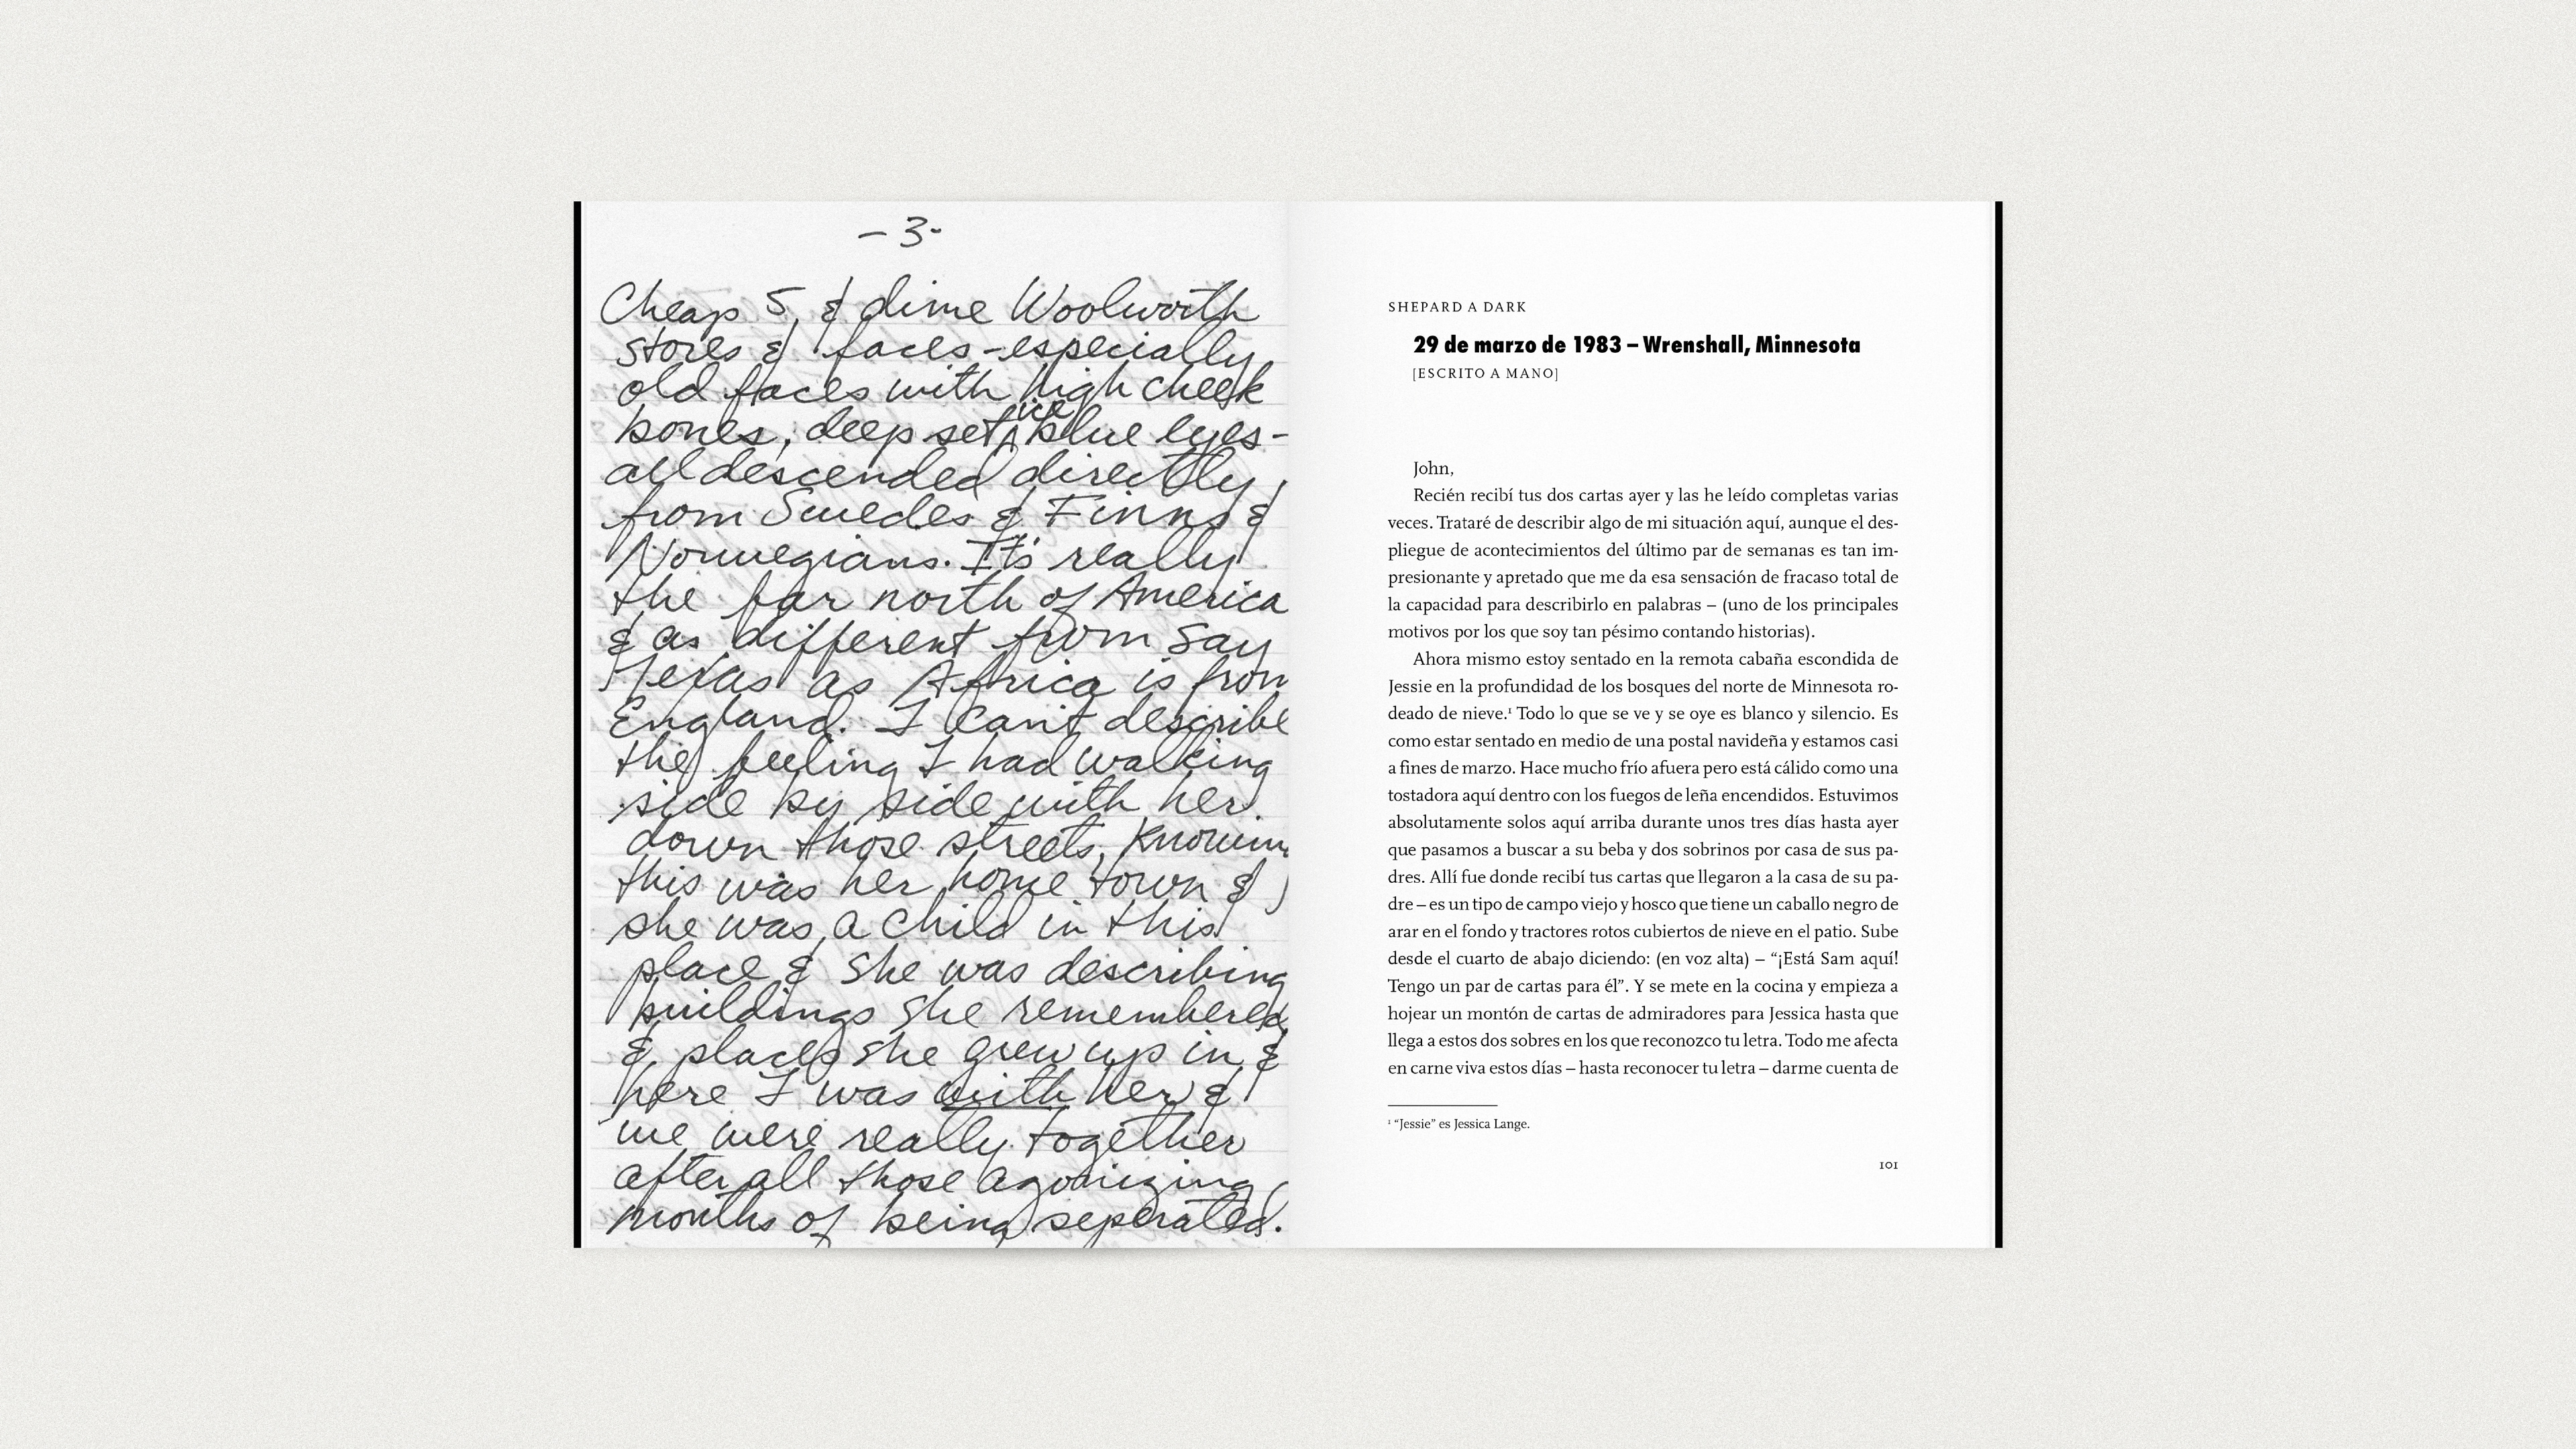 -3-
Cheap 5 & dime Woolworth
stores & faces - especially
old faces with high cheek
bones, deep set ice blue eyes -
all descended directly
from Swedes & Finns &
Norwegians. It's really
the far north of America
& as different from say
Texas as Africa is from
England. I can't describe
the feeling I had walking
side by side with her
down those streets, knowin
this was her home town &
she was a child in this
place & she was describing
buildings she remembered
& places she grew up in &
here I was with her &
we were really together
after all those agonizing
months of being seperated.
SHEPARD A DARK
29 de marzo de 1983 – Wrenshall, Minnesota
[ESCRITO A MANO]
John,
Recién recibí tus dos cartas ayer y las he leído completas varias
veces. Trataré de describir algo de mi situación aquí, aunque el des-
pliegue de acontecimientos del último par de semanas es tan im-
presionante y apretado que me da esa sensación de fracaso total de
la capacidad para describirlo en palabras – (uno de los principales
motivos por los que soy tan pésimo contando historias).
Ahora mismo estoy sentado en la remota cabaña escondida de
Jessie en la profundidad de los bosques del norte de Minnesota ro-
deado de nieve.¹ Todo lo que se ve y se oye es blanco y silencio. Es
como estar sentado en medio de una postal navideña y estamos casi
a fines de marzo. Hace mucho frío afuera pero está cálido como una
tostadora aquí dentro con los fuegos de leña encendidos. Estuvimos
absolutamente solos aquí arriba durante unos tres días hasta ayer
que pasamos a buscar a su beba y dos sobrinos por casa de sus pa-
dres. Allí fue donde recibí tus cartas que llegaron a la casa de su pa-
dre – es un tipo de campo viejo y hosco que tiene un caballo negro de
arar en el fondo y tractores rotos cubiertos de nieve en el patio. Sube
desde el cuarto de abajo diciendo: (en voz alta) – “¡Está Sam aquí!
Tengo un par de cartas para él”. Y se mete en la cocina y empieza a
hojear un montón de cartas de admiradores para Jessica hasta que
llega a estos dos sobres en los que reconozco tu letra. Todo me afecta
en carne viva estos días – hasta reconocer tu letra – darme cuenta de
¹ “Jessie” es Jessica Lange.
101